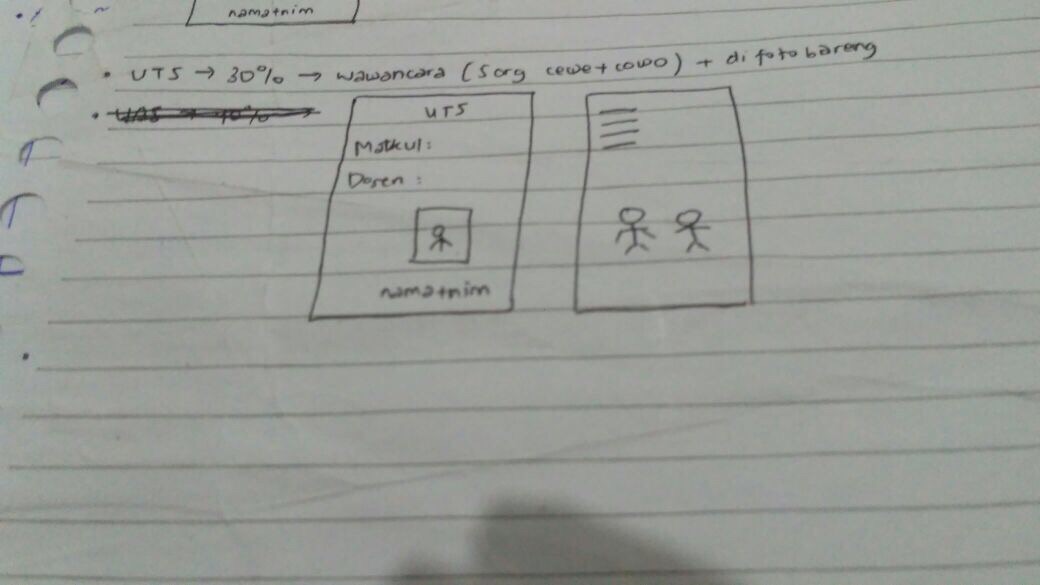 nama+nim
• UTS → 30% → wawancara (5 org cewe+cowo) + di foto bareng
• UAS → 40% →
UTS
Matkul:
Dosen :
nama+nim